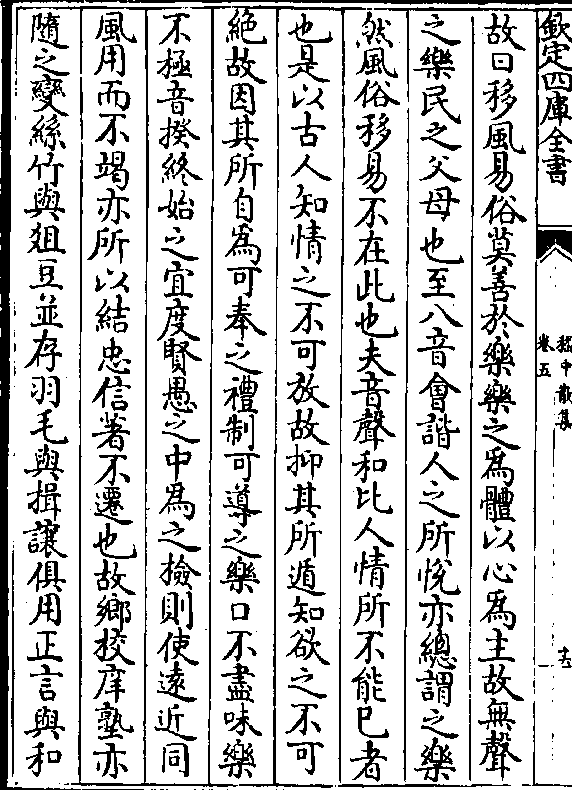 欽定四庫全書
嵇中散集
卷五
故曰移風易俗莫善於樂樂之為體以心為主故無聲
之樂民之父母也至八音會諧人之所悅亦總謂之樂
然風俗移易不在此也夫音聲和比人情所不能已者
也是以古人知情之不可放故抑其所遁知欲之不可
絶故因其所自為可奉之禮制可導之樂口不盡味樂
不極音揆終始之宜度賢愚之中為之檢則使遠近同
風用而不竭亦所以結忠信著不遷也故鄉校庠塾亦
隨之變絲竹與俎豆並存羽毛與揖讓俱用正言與和